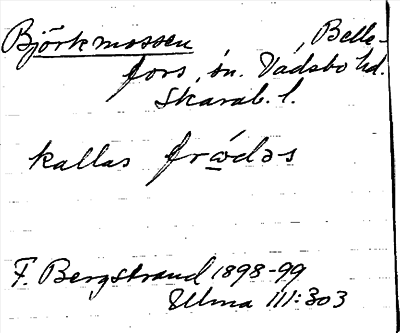 Björkmossen, Belle-
fors, sn. Vadsbo hd.
Skarab. l.
kallas frǻdəs
F. Bergstrand 1898-99
Ulma 111:303